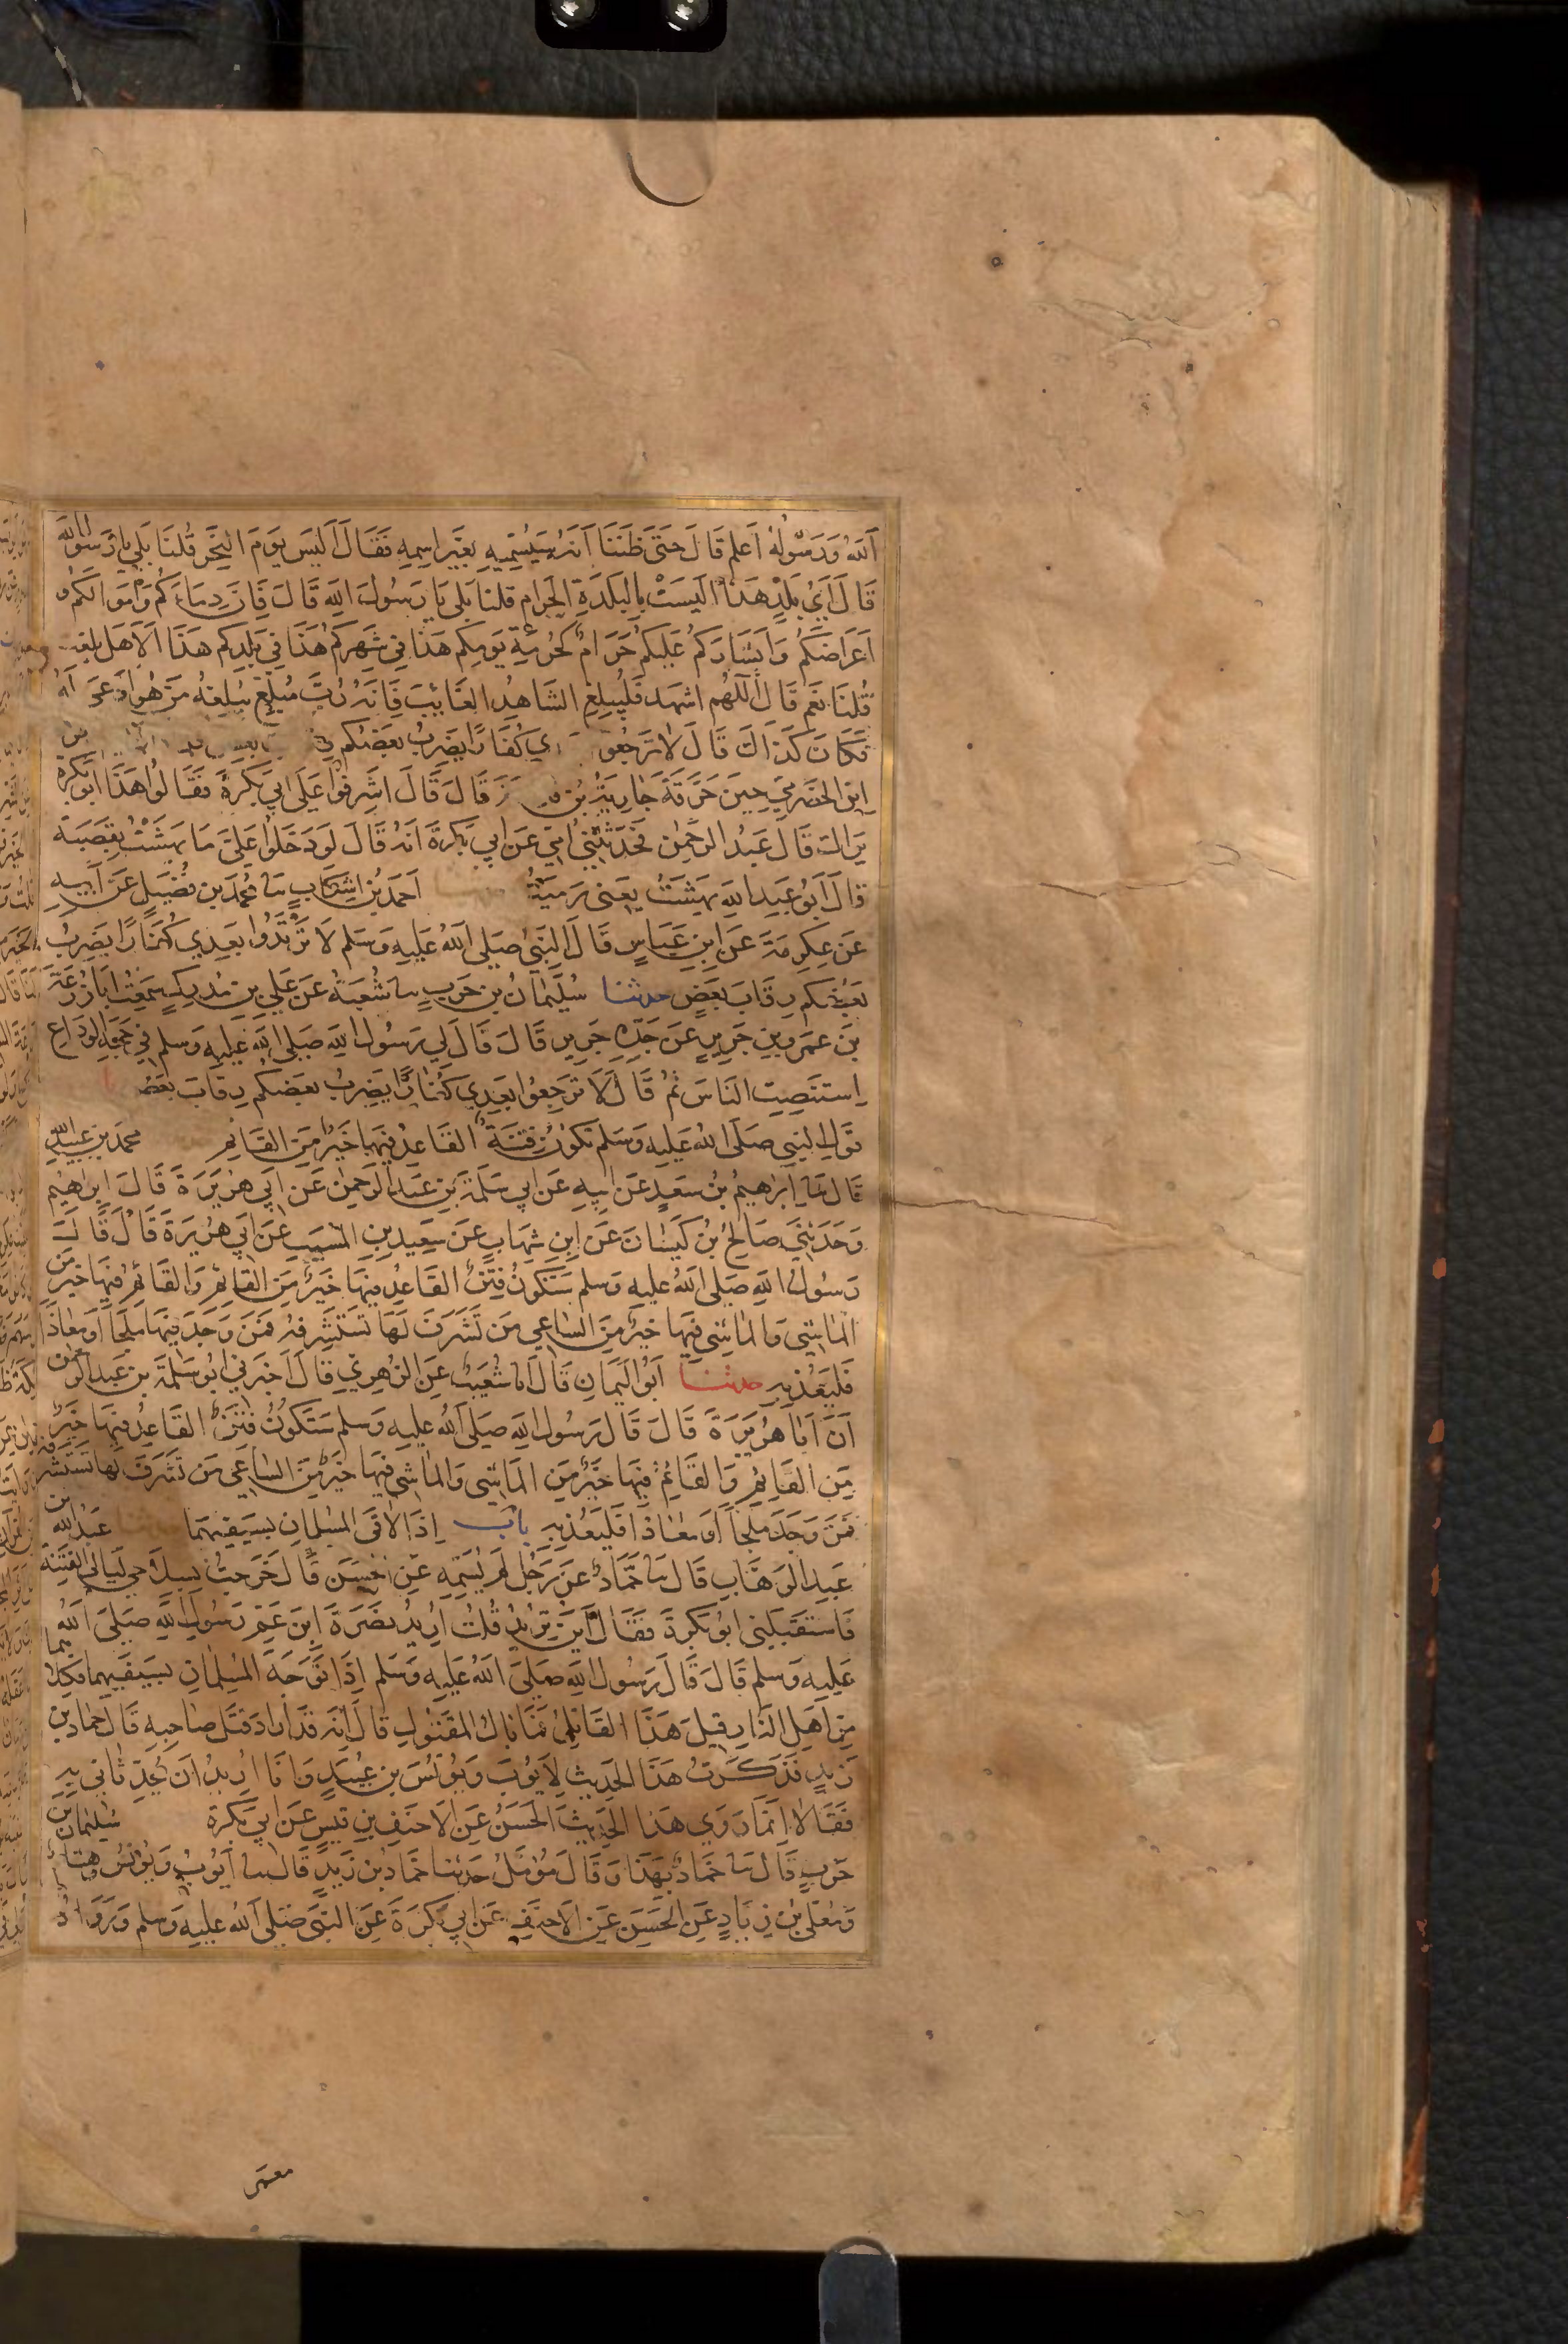 اَللهُ وَرَسُولُهُ اَعْلَم قَالَ حَتَّى ظَنَنَّا اَنَّهُ سَيُسَمِّيهِ بِغَيْرِ اسْمِهِ فَقَالَ اَلَيْسَ يَوْمَ النَّحْرِ قُلْنَا بَلَى يَا رَسُولَ اللهِ
قَالَ اَيُّ بَلَدٍ هَذَا اَلَيْسَتْ بِالْبَلْدَةِ الْحَرَام قُلْنَا بَلَى يَا رَسُولَ اللهِ قَالَ فَاِنَّ دِمَاءَكُمْ وَاَمْوَالَكُمْ وَ
اَعْرَاضَكُمْ وَاَبْشَارَكُمْ عَلَيْكُمْ حَرَامٌ كَحُرْمَةِ يَوْمِكُم هَذَا فِي شَهْرِكُمْ هَذَا فِي بَلَدِكُم هَذَا اَلَا هَل بلغت
قُلْنَا نَعَم قَالَ اَللّهُم اشْهَد فَلْيُبَلِّغ الشَّاهِدُ الغَائِبَ فَاِنَّهُ رُبَّ مُبَلِّغٍ يُبَلِّغُهُ مَنْ هُوَ اَوْعَى لَهُ
فَكَانَ كَذَالَكَ قَالَ لَا تَرْجِعُوا بعدي كُفَّارًا يَضْرِبُ بَعْضُكُم
ابْن الحَضْرَمِي حِينَ حَرَّقَهُ جَارِيَةُ بْن قَالَ قَالَ اَشْرِفُوا عَلَى اَبِي بَكْرَةَ فَقَالُوا هَذَا اَبُو بَكْرَة
يَرَاكَ قَالَ عَبْدُ الرَّحْمٰن فَحَدَّثَتْنِي اُمِّي عَن اَبِي بَكْرَةَ اَنَّهُ قَالَ لَوْ دَخَلُوا عَلَيَّ مَا بَهَشْتُ بِقَصَبَةٍ
قَالَ اَبُو عَبْدِ اللهِ بَهَشْتُ يَعْنِي رَمَيْتُ اَحْمَدُ بْنُ اِشْكَابٍ ثنا مُحَمَّد بن فُضَيْلٍ عَنْ اَبِيهِ
عَنْ عِكْرِمَةَ عَنِ ابْنِ عَبَّاسٍ قَالَ النَّبِيُّ صَلَّى اللهُ عَلَيْهِ وَسَلم لَا تَرْتَدُّوا بَعْدِي كُفَّارًا يَضْرِبُ
بَعْضُكُم رِقَابَ بَعْضٍ حدثنا سُلَيْمَانُ بن حَرْبٍ ثنا شُعْبَةُ عَن عَلِي بن مُدْرِكٍ سَمِعْتُ اَبَا زُرْعَةَ
بْنَ عَمْرِو بْنِ جَرِيرٍ عَنْ جَدِّهِ جَرِيرٍ قَالَ قَالَ لِي رَسُولُ اللهِ صَلَّى اللهُ عَلَيْهِ وَسَلم فِي حَجَّةِ الوَدَاعِ
اِسْتَنْصِتِ النَّاسَ ثُمَّ قَالَ لَا تَرْجِعُوا بَعْدِي كُفَّارًا يَضْرِبُ بَعْضُكُمْ رِقَابَ بَعْض
قَوْلِ النَّبِي صَلَّى اللهُ عَلَيْهِ وَسَلم تَكُونُ فِتْنَةٌ القَاعِدُ فِيهَا خَيْرٌ مِنَ القَائِم محمد بن عبيد الله
قَالَ ثنا اِبْرَاهِيمُ بْنُ سَعْدٍ عَنْ اَبِيهِ عَنْ اَبِي سَلَمَةَ بْنِ عَبْدِ الرَّحْمٰنِ عَنْ اَبِي هُرَيْرَةَ قَالَ اِبرَاهِيْم
وَحَدَّثَنِي صَالِحُ بْنُ كَيْسَانَ عَنِ ابْنِ شِهَابٍ عَنْ سَعِيدِ بْنِ المُسَيَّبِ عَنْ اَبِي هُرَيْرَةَ قَالَ قَالَ
رَسُولُ اللهِ صَلَّى اللهُ عَلَيْهِ وَسلم سَتَكُونُ فِتَنٌ القَاعِدُ فِيهَا خَيْرٌ مِنَ القَائِمِ وَالقَائِمُ فِيهَا خَيْرٌ مِنَ
الْمَاشِي وَالمَاشِي فِيهَا خَيْرٌ مِنَ السَّاعِي مَنْ تَشَرَّفَ لَهَا تَسْتَشْرِفْهُ فَمَنْ وَجَدَ فِيهَا مَلْجَأً اَوْ مَعَاذًا
فَلْيَعُذْ بِهِ حدثنا اَبُو اليَمَانِ قَالَ انا شُعَيْبٌ عَنِ الزُّهْرِيِّ قَالَ اَخْبَرَنِي اَبُو سَلَمَةَ بن عَبْدِ الرَّحْمٰن
اَنَّ اَبَا هُرَيْرَةَ قَالَ قَالَ رَسُولُ اللهِ صَلَّى اَللهُ عَلَيْهِ وَسلم سَتَكُونُ فِتَنٌ القَاعِدُ فِيهَا خَيْرٌ
مِنَ القَائِمِ وَالقَائِمُ فِيهَا خَيْرٌ مِنَ المَاشِي وَالمَاشِي فِيهَا خَيْرٌ مِنَ السَّاعِي مَن تَشَرَّفَ لَهَا تَسْتَشْرِفْهُ
فَمَنْ وَجَدَ مَلْجَأً اَوْ مَعَاذًا فَلْيَعُذْ بِهِ بَابُ اِذَا الْاقَى المُسْلِمَانِ بِسَيْفَيْهِمَا عَبْدُ اللهِ بن
عَبْدِ الوَهَّابِ قَالَ ثنا حَمَّادٌ عَنْ رَجُلٍ لَمْ يُسَمِّهِ عَنِ الحَسَنِ قَالَ خَرَجْتُ بِسِلَاحِي لَيَالِيَ الفِتْنَةِ
فَاسْتَقْبَلَنِي اَبُو بَكْرَةَ فَقَالَ اَيْنَ تُرِيْدُ قُلْتُ اُرِيْدُ نُصْرَةَ ابْنَ عَمِّ رَسُولِ اللهِ صَلَّى اَللهُ
عَلَيْهِ وَسَلم قَالَ قَالَ رَسُولُ اللهِ صَلَّى اللهُ عَلَيْهِ وَسَلم اِذَا تَوَجَّهَ المُسْلِمَانِ بِسَيْفَيْهِمَا فَكِلَاهُمَا
مِنْ اَهْلِ النَّارِ قِيلَ هَذَا القَاتِلُ فَمَا بَالُ المَقْتُولِ قَالَ اِنَّهُ قَدْ اَرَادَ قَتْلَ صَاحِبِهِ قَالَ حَمَّاد بن
زَيْدٍ فَذَكَرْتُ هَذَا الحَدِيثَ لِاَيُّوبَ وَيُونُسَ بن عُبَيْدٍ وَاَنَا اُرِيدُ اَنْ يُحَدِّثَانِي بِهِ
فَقَالَا اِنَّمَا رَوَى هَذَا الحَدِيْثَ الحَسَنُ عَنِ الاَحْنَفِ بْنِ قَيْسٍ عَنْ اَبِي بَكْرَة سُلَيْمَانُ بْنُ
حَرْبٍ قَالَ ثنا حَمَّادٌ بِهَذَا وَقَالَ مُؤَمَّلٌ حَدَّثَنَا حَمَّادُ بْنُ زَيْدٍ قَالَ ثنا اَيُّوبُ وَيُونُسُ وَهِشَامٌ
وَمُعَلَّى بْنُ زِيَادٍ عَنِ الحَسَنِ عَنِ الاَحْنَفِ عَنْ اَبِي بَكْرَةَ عَنِ النَّبِيِّ صَلَّى اللهُ عَلَيْهِ وَسلم وَرَوَاهُ
معمر